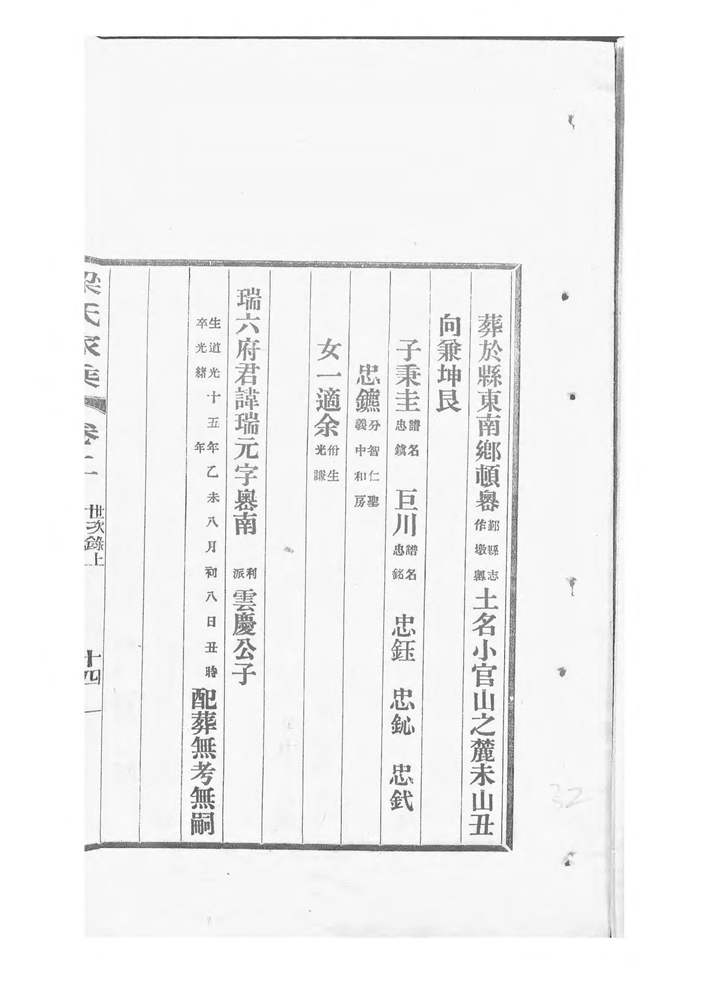 葬於縣東南鄉頓嶴鄞縣志作墩嶴土名小官山之麓未山丑
向兼坤艮
子秉圭譜名忠鎮 巨川譜名忠銘 忠鈺 忠鉍 忠鉽
忠鑣分智仁聖義中和房
女一適余佾生光謙
瑞六府君諱瑞元字嶴南利派雲慶公子
生道光十五年乙未八月初八日丑時卒光緒年配葬無考無嗣
梁氏家乘 卷二 世次錄上 十四
32